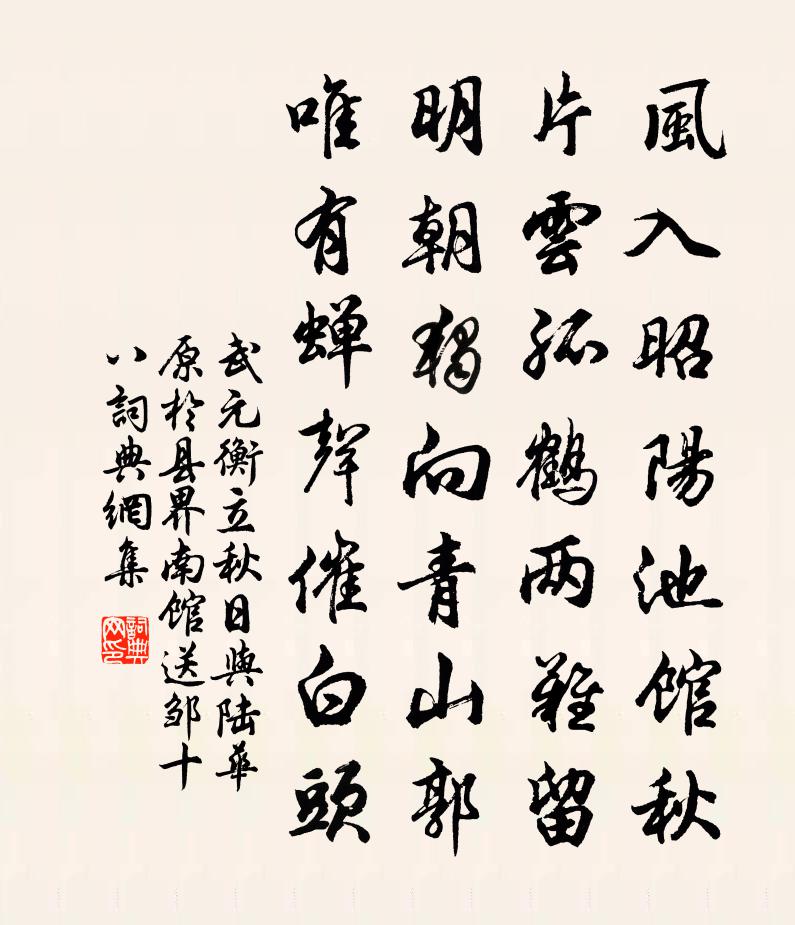 風入昭陽池館秋
片雲孤鶴两難留
明朝獨向青山郭
唯有蟬聲催白頭
武元衡立秋日與陆華
原於县界南館送邹十
八詞典網集
詞典
网印